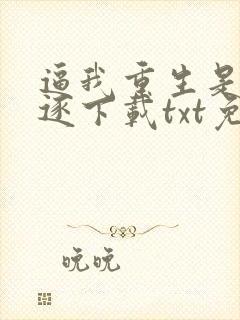 逼我重生是
逐下载txt免
晚晚